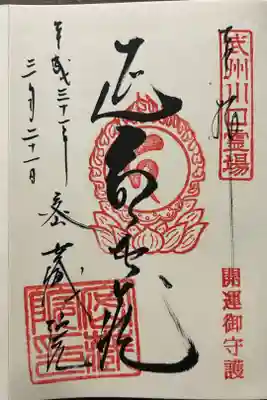 武州川口霊場
奉拝
開運御守護
延命地蔵
平成三十一年
三月二十一日
密蔵院